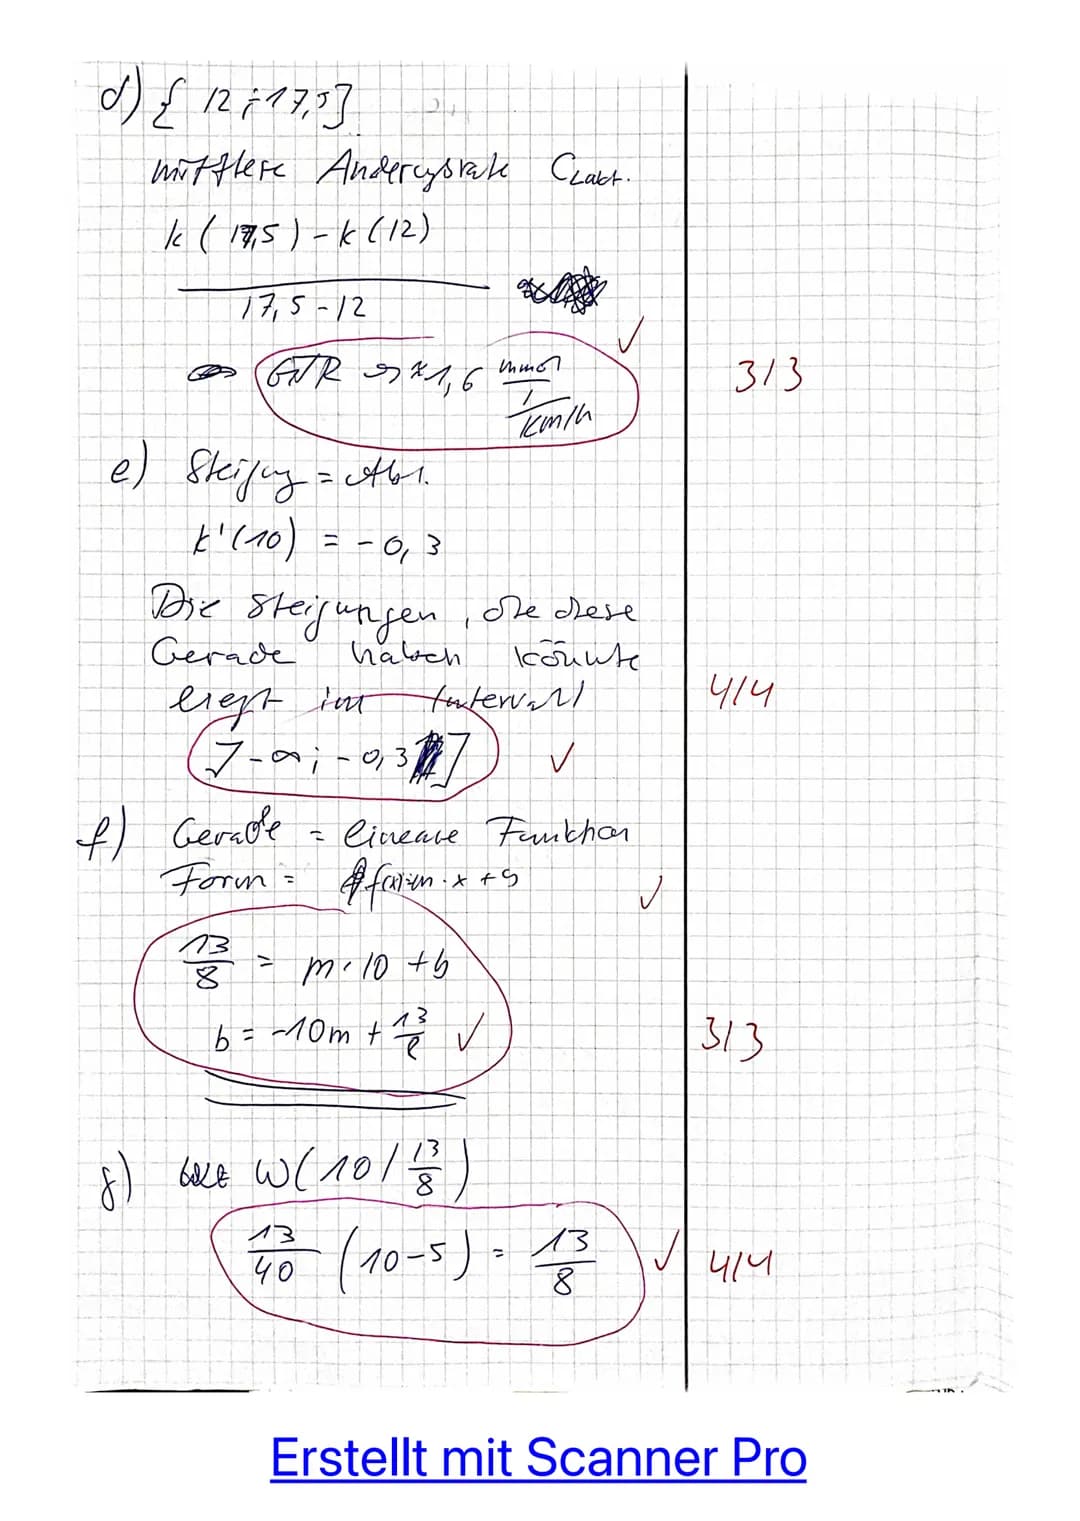 d) { 12 ; 17,5]
mittlere Änderugsrate CLakt.
k ( 17,5 ) - k (12)
17,5 - 12
GTR => ≈ 1,6 mmol / l / km/h ✓ 3/3
e) Steigug = Abl.
k'(10) = - 0, 3
Die Steigungen, die diese
Gerade haben könnte
liegt im Intervall 4/4
]-∞; - 0,3] ✓
f) Gerade = lineare Funktion
Form = f(x)=m · x + b ✓
13/8 = m · 10 + b
b = -10m + 13/8 ✓ 3/3
g) W( 10 / 13/8 )
13/40 (10-5) = 13/8 ✓ 4/4
Erstellt mit Scanner Pro